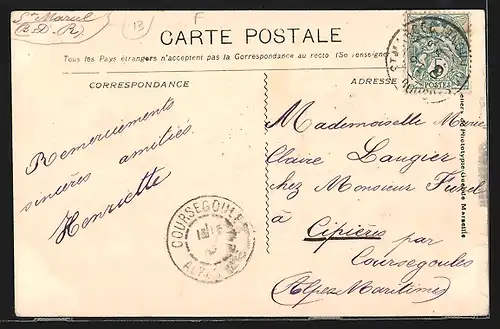 St Marcel
(B-D-R)
13
F
CARTE POSTALE
Tous les Pays étrangers n'acceptent pas la Correspondance au recto (Se renseigner
CORRESPONDANCE
ADRESSE
Remerciements
sincères amitiés
Henriette
COURSEGOULES
ALPES
POSTES
Mademoiselle Marie
Claire Laugier
chez Monsieur Funel
à Cipières par
Coursegoules
(Alpes Maritimes)
Marseille